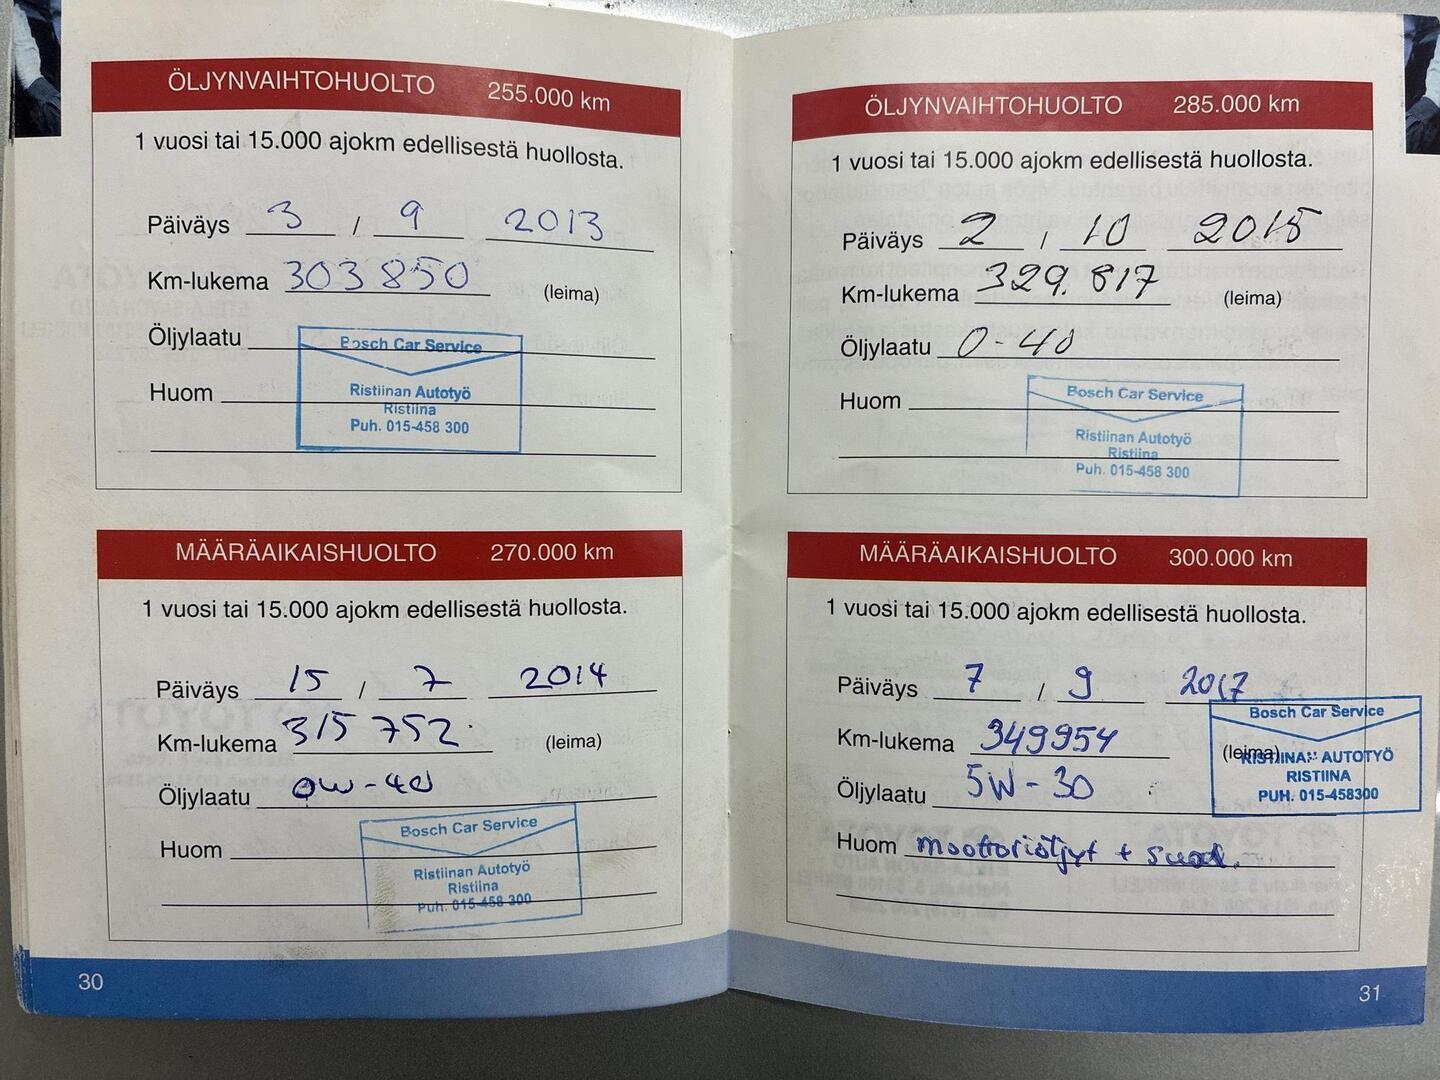 ÖLJYNVAIHTOHUOLTO 255.000 km
1 vuosi tai 15.000 ajokm edellisestä huollosta.
Päiväys 3 / 9 2013
Km-lukema 303850 (leima)
Öljylaatu
Bosch Car Service
Huom
Ristiinan Autotyö
Ristiina
Puh. 015-458 300
MÄÄRÄAIKAISHUOLTO 270.000 km
1 vuosi tai 15.000 ajokm edellisestä huollosta.
Päiväys 15 / 7 2014
Km-lukema 315 752. (leima)
Öljylaatu 0W-40
Huom
Bosch Car Service
Ristiinan Autotyö
Ristiina
Puh. 015-458 300
30
ÖLJYNVAIHTOHUOLTO 285.000 km
1 vuosi tai 15.000 ajokm edellisestä huollosta.
Päiväys 2 / 10 2015
Km-lukema 329.817 (leima)
Öljylaatu 0-40
Huom
Bosch Car Service
Ristiinan Autotyö
Ristiina
Puh. 015-458 300
MÄÄRÄAIKAISHUOLTO 300.000 km
1 vuosi tai 15.000 ajokm edellisestä huollosta.
Päiväys 7 / 9 2017
Km-lukema 349954 (leima)
Öljylaatu 5W-30
Bosch Car Service
RISTIINAN AUTOTYÖ
RISTIINA
PUH. 015-458300
Huom moottoriöljyt + suod.
31